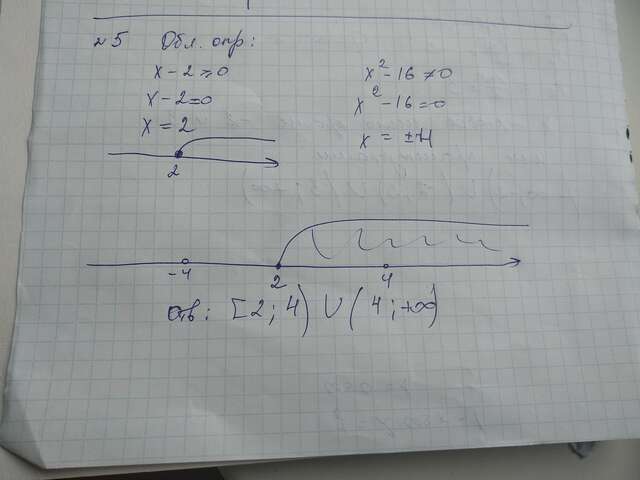 №5 Обл. опр:
x - 2 ⩾ 0
x - 2 = 0
x = 2
2
x² - 16 ≠ 0
x² - 16 = 0
x = ±4
-4 2 4
Отв: [2; 4) ∪ (4; +∞)